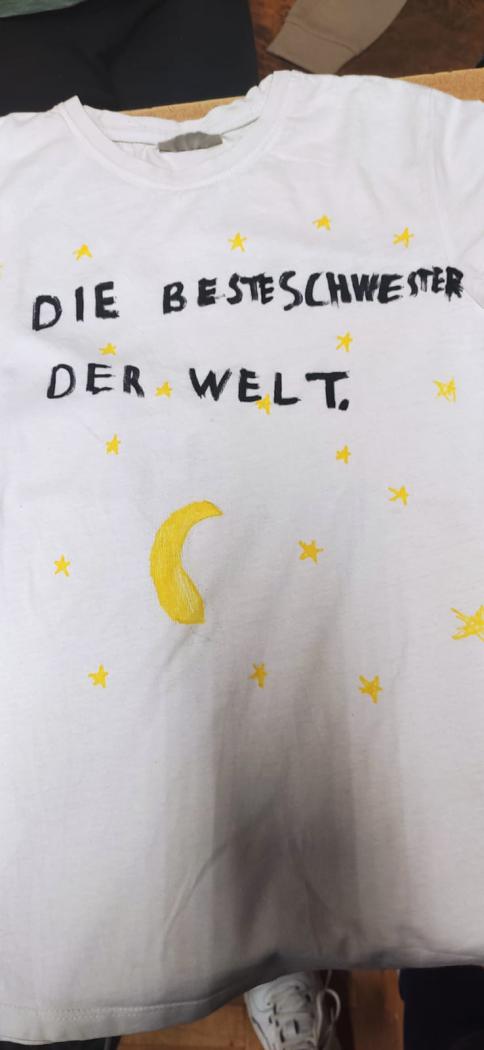 DIE BESTESCHWESTER
DER WELT.